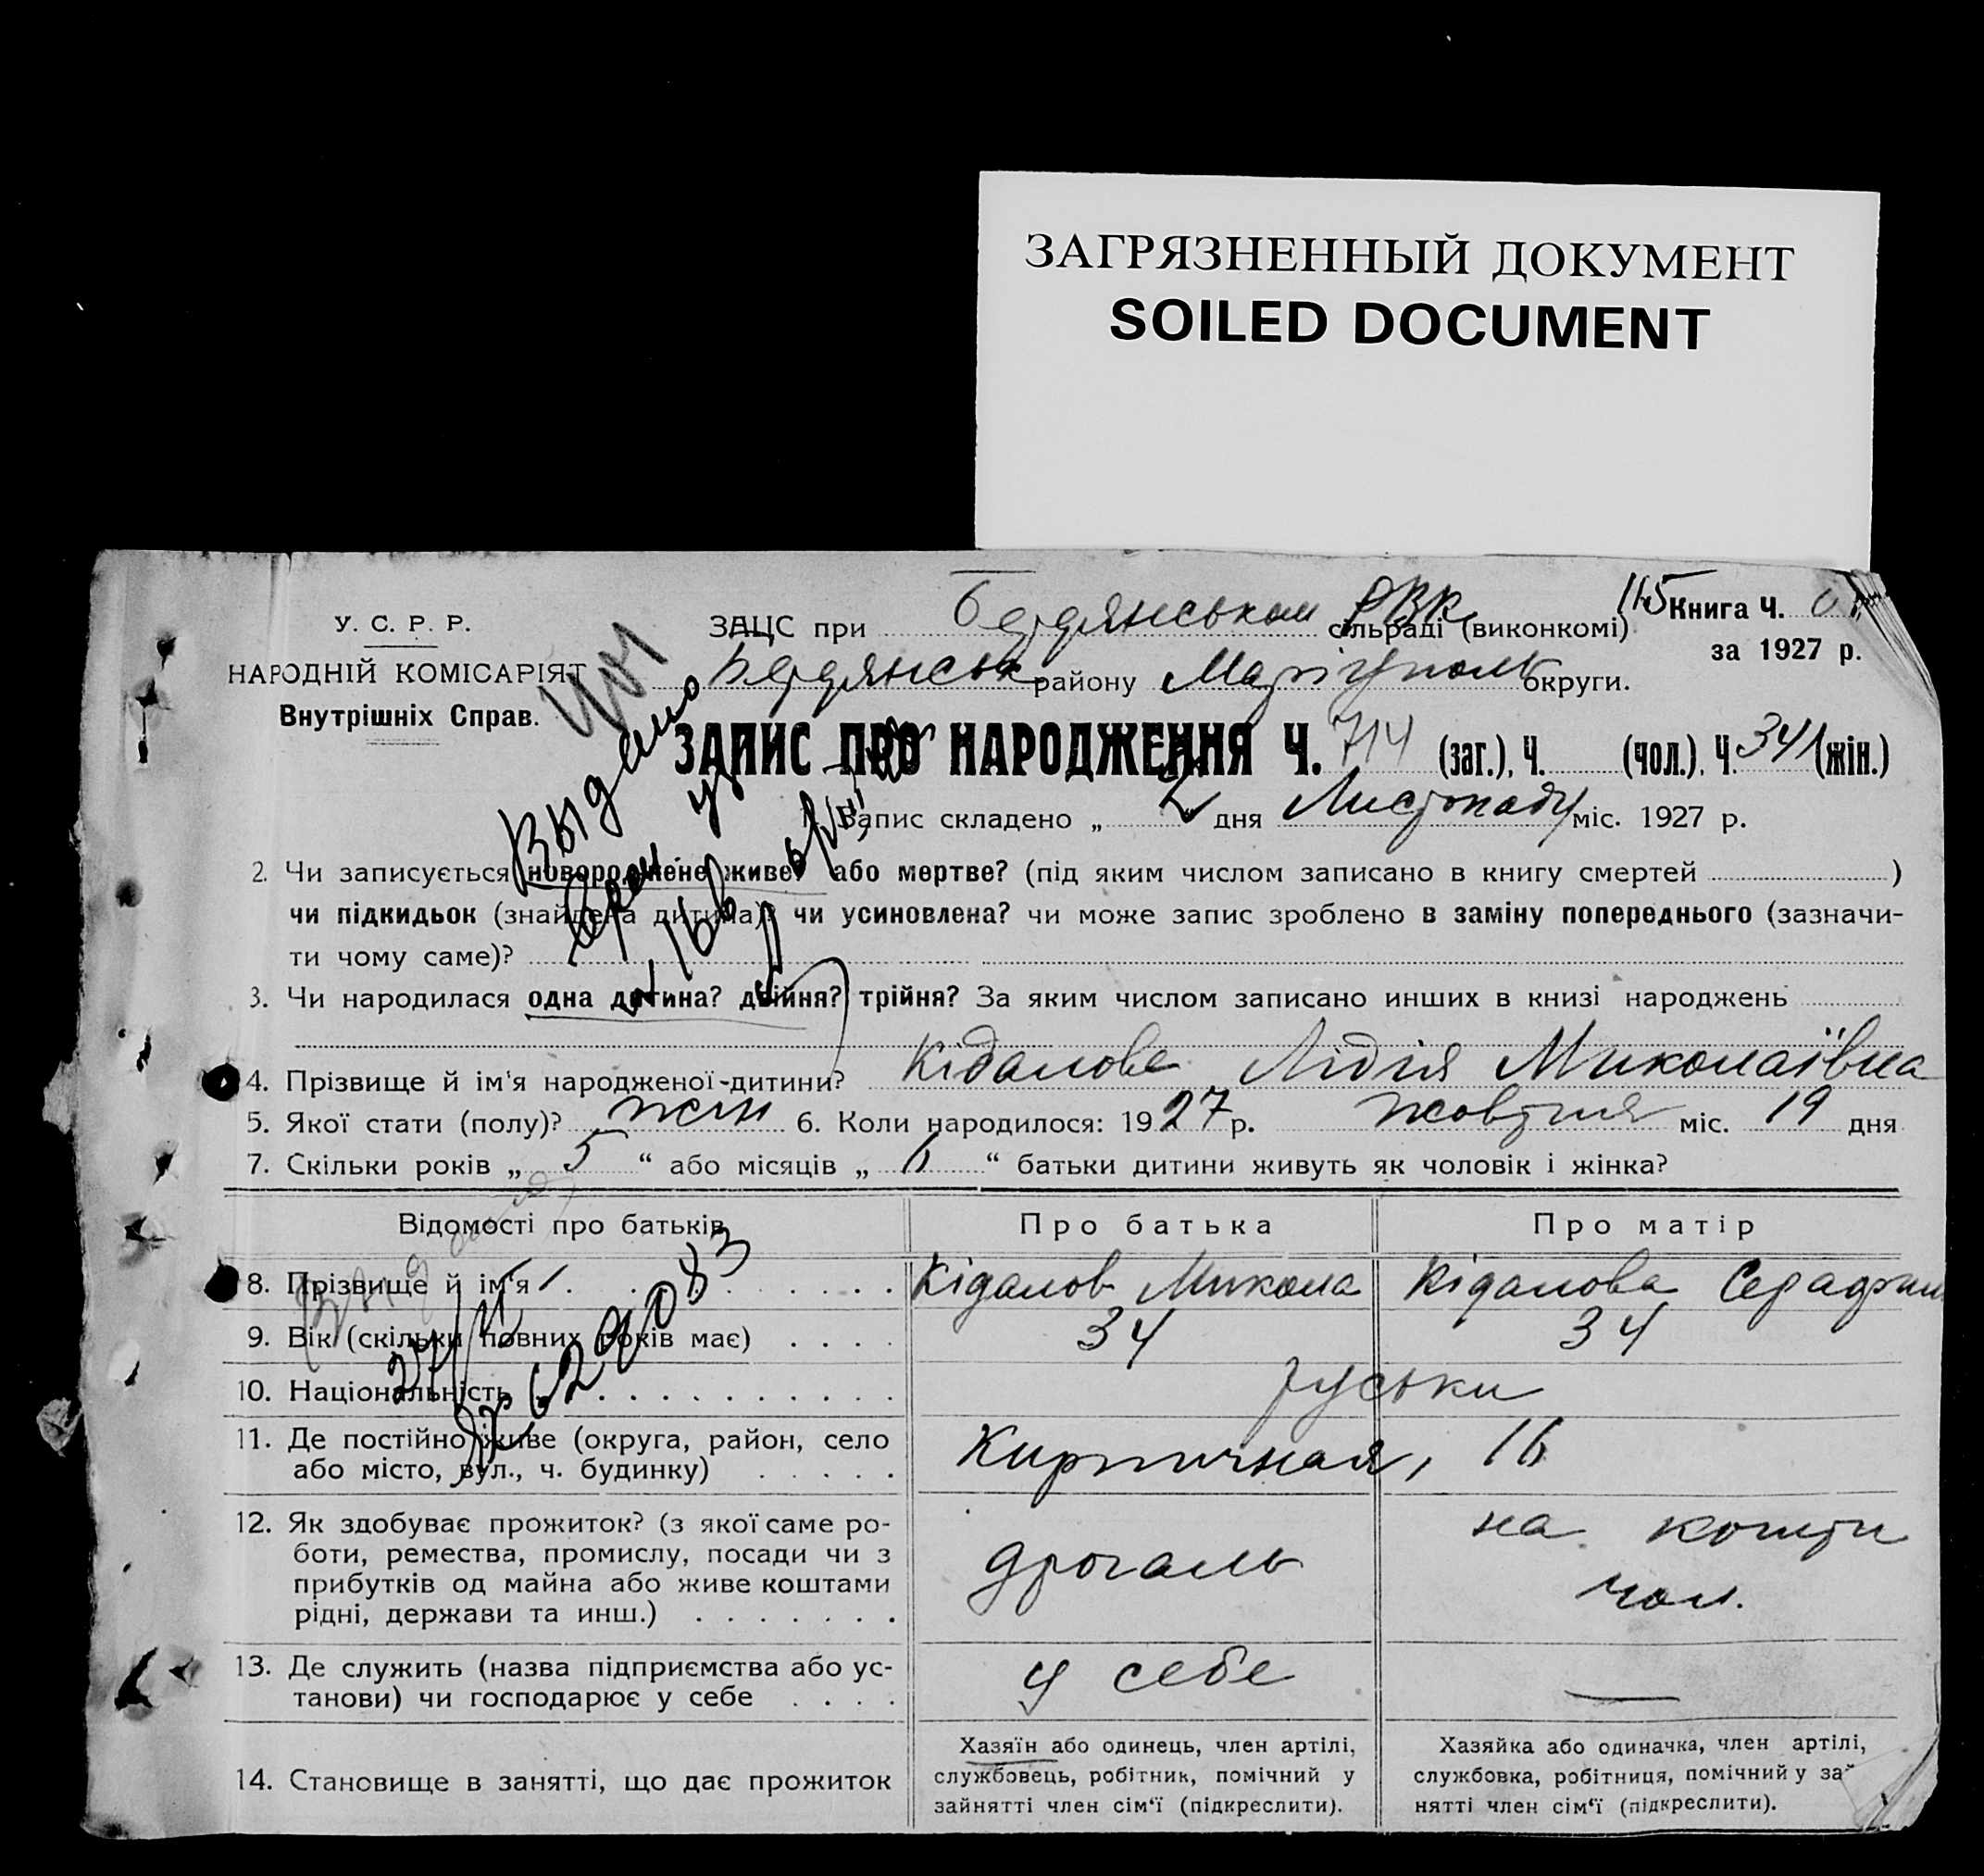 ЗАГРЯЗНЕННЫЙ ДОКУМЕНТ
SOILED DOCUMENT
У. С. Р. Р.
НАРОДНІЙ КОМІСАРІЯТ
Внутрішніх Справ.
ЗАЦС при Бердянськом РВК сільраді (виконкомі)
115 Книга Ч.
за 1927 р.
Бердянськ району Маріуполь округи.
ЗАПИС ПРО НАРОДЖЕННЯ Ч. 714 (заг.), Ч. (чол.), Ч. 341 (жін.)
Запис складено „ 2 дня Листопаду міс. 1927 р.
Выдано
2. Чи записується новороджене живе? або мертве? (під яким числом записано в книгу смертей )
чи підкидьок (знайдена дитина)? чи усиновлена? чи може запис зроблено в заміну попереднього (зазначи-
ти чому саме)?
3. Чи народилася одна дитина? двійня? трійня? За яким числом записано инших в книзі народжень
4. Прізвище й ім'я народженої-дитини? Кідалова Лідія Миколаївна
5. Якої стати (полу)? жін 6. Коли народилося: 1927 р. жовтня міс. 19 дня
7. Скільки років „ 5 “ або місяців „ “ батьки дитини живуть як чоловік і жінка?
Відомості про батьків
Про батька
Про матір
8. Прізвище й ім'я
Кідалов Микола
Кідалова Серафим
9. Вік (скільки повних років має)
34
34
10. Національність
руськи
629083
11. Де постійно живе (округа, район, село
або місто, вул., ч. будинку)
Кирпичная, 16
12. Як здобуває прожиток? (з якої саме ро-
боти, ремества, промислу, посади чи з
прибутків од майна або живе коштами
рідні, держави та инш.)
дрогаль
на кошти
чол.
13. Де служить (назва підприємства або ус-
танови) чи господарює у себе
у себе
—
14. Становище в занятті, що дає прожиток
Хазяїн або одинець, член артілі,
службовець, робітник, помічний у
зайнятті член сім'ї (підкреслити).
Хазяйка або одиначка, член артілі,
службовка, робітниця, помічний у зай
нятті член сім'ї (підкреслити).